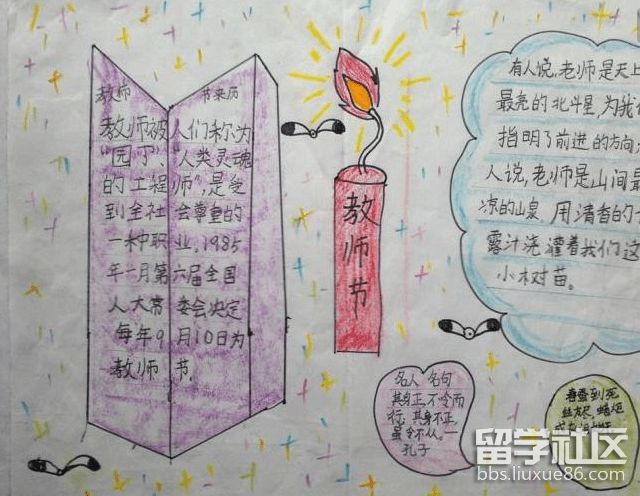 教师节来历
教师被人们称为
"园丁"、"人类灵魂
的工程师",是受
到全社会尊重的
一种职业,1985
年一月第六届全国
人大常委会决定
每年9月10日为
教师节.
教师节
有人说,老师是天上
最亮的北斗星,为我
指明了前进的方向
人说,老师是山间
凉的山泉 用清香的
露汁浇灌着我们这
小树苗。
名人名句
其身正,不令而
行,其身不正,
虽令不从。一
孔子
春蚕到死
丝方尽 蜡炬
留学社区
bbs.liuxue86.com